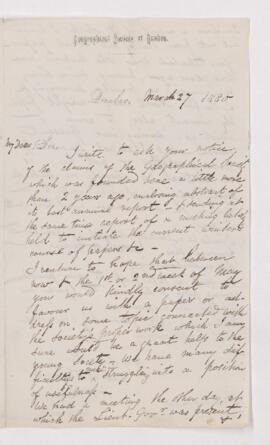 Geographical Society of Quebec.
Quebec March 27 1880
My dear Sir
I write to ask your notice
of the claims of the Geographical Society
which was founded here a little more
than 2 years ago, enclosing abstract of
its last annual report & sending at
the same time report of a meeting lately
held to initiate the current winter's
course of papers &c -
I venture to hope that between
now & the 1st or 2nd week of May
you would kindly consent to
favour us with a paper or ad-
dress on some topic connected with
the Society's proper work which I am
sure would be a great help to the
young Society - We have many dif-
ficulties to struggling into a position
of usefulness -
We had a meeting the other day, at
which the Lieut. Govr. was present